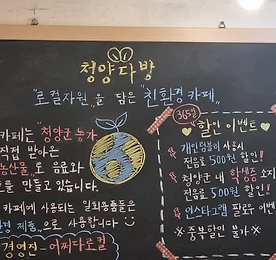 청양다방
"로컬자원"을 담은 "친환경 카페"
카페는 "청양군 농가
직접 받아온
농산물"로 음료와
를 만들고 있습니다.
카페에 사용되는 일회용품들은
제품"으로 사용합니다
경영진 - 어쩌다로컬
365일
할인 이벤트
개인텀블러 사용시
전음료 500원 할인!
청양군 내 학생증 소지
전음료 500원 할인!
인스타그램 팔로우 이벤
※중복할인 불가※